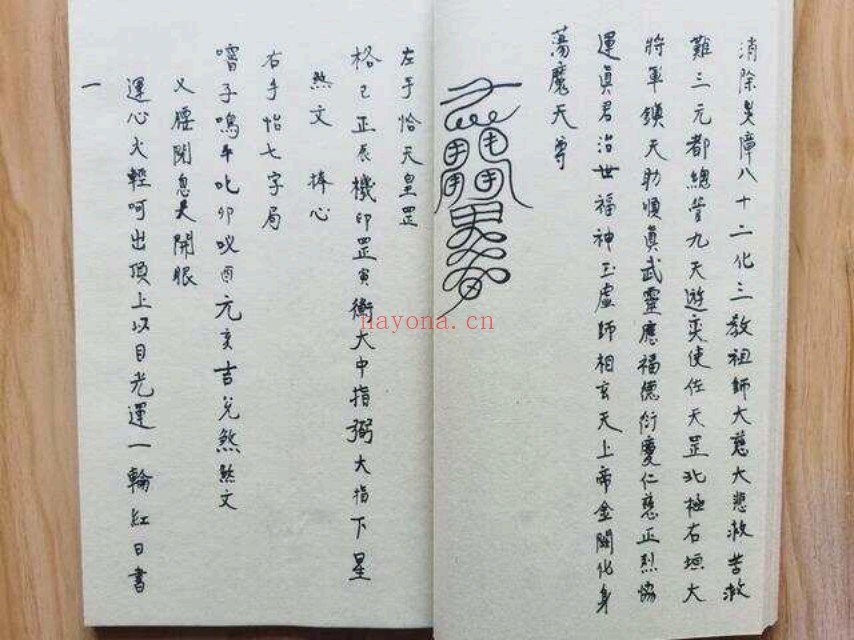 消除災障八十二化三教祖師大慈大悲救苦救
難三元都總管九天遊奕使佐天罡北極右垣大
將軍鎮天助順真武靈應福德衍慶仁慈正烈協
運真君治世福神玉虛師相玄天上帝金闕化身
蕩魔天尊
左手恰天皇罡
格己正辰機印罡寅衡大中指弼大指下星
煞文 捧心
右手恰七字局
嚼子鳴午叱卯吆酉元亥吉兌煞煞文
叉腰閉息 開眼
運心火輕呵出頂上以目光運一輪紅日書
一
nayona.cn